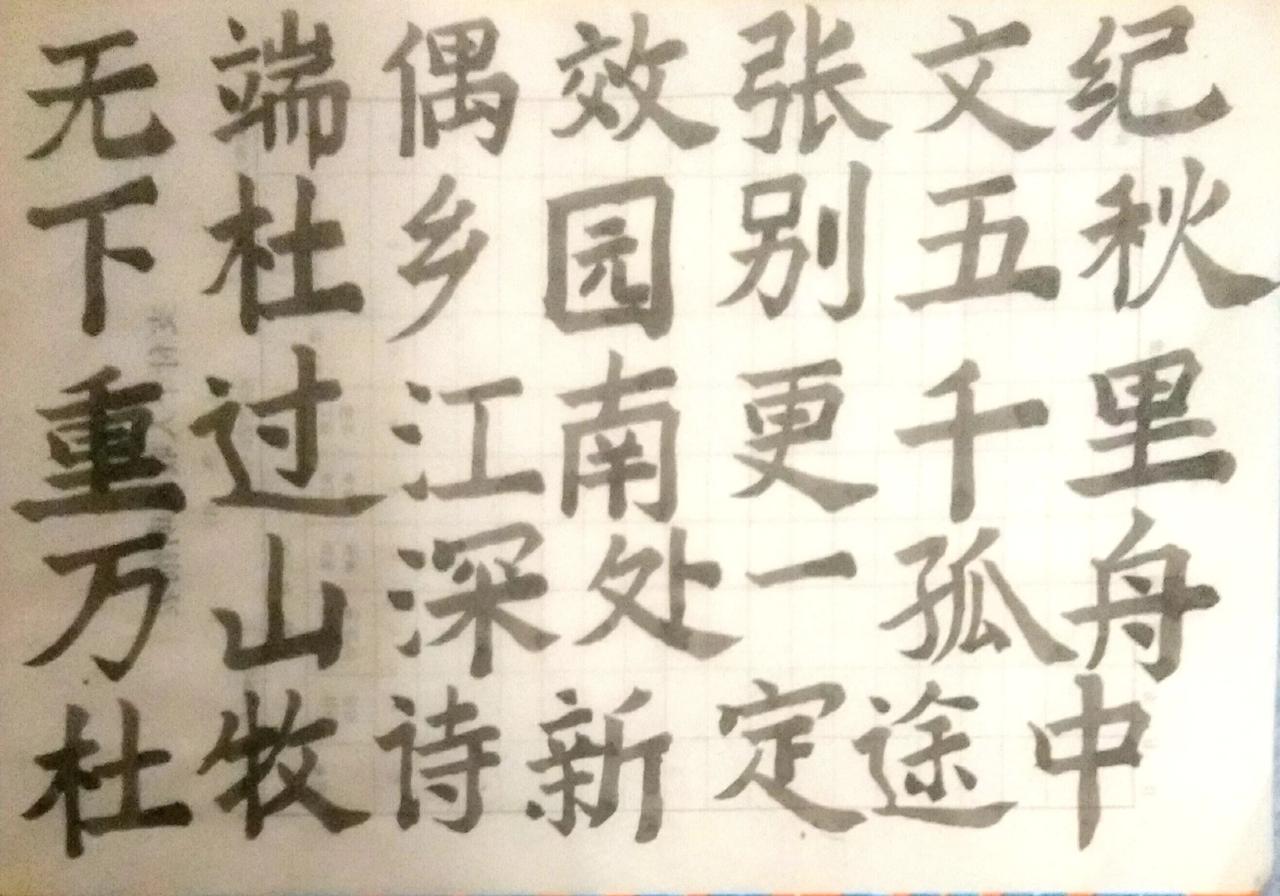 无端偶效张文纪
下杜乡园别五秋
重过江南更千里
万山深处一孤舟
杜牧诗新定途中